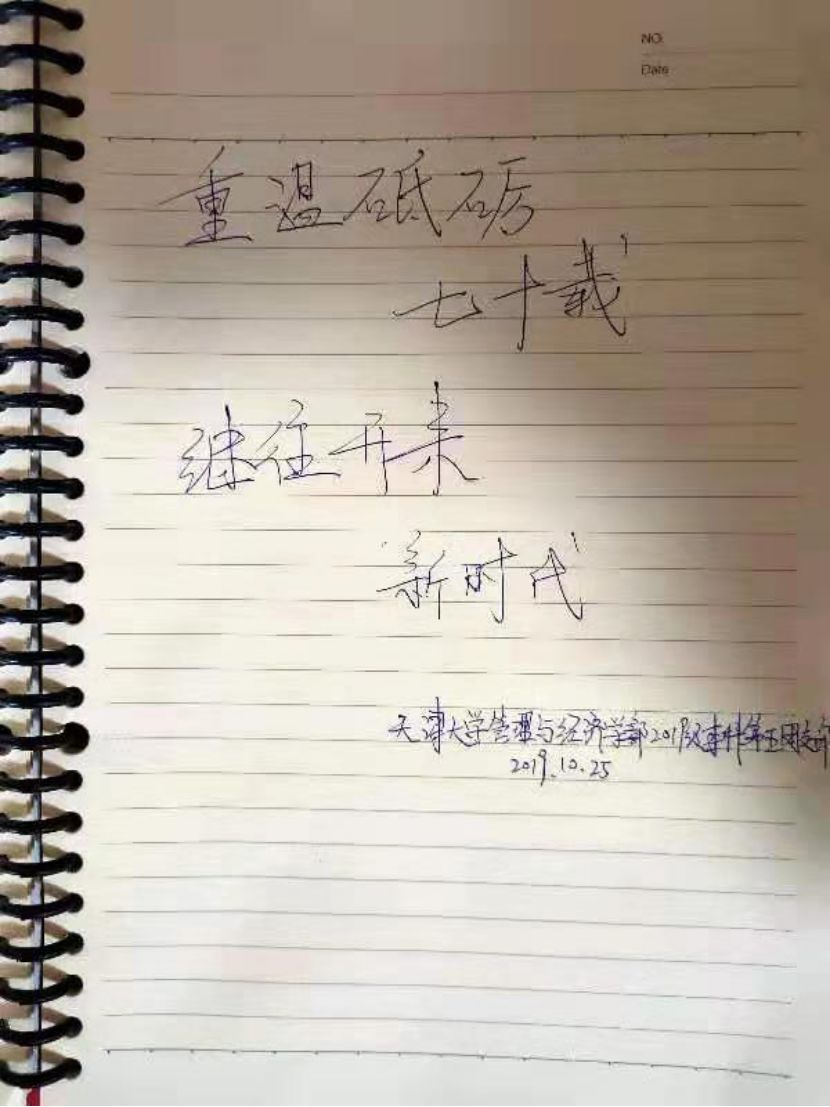 NO.
Date
重温砥砺
七十载
继往开来
新时代
天津大学管理与经济学部2019级本科第五团支部
2019.10.25